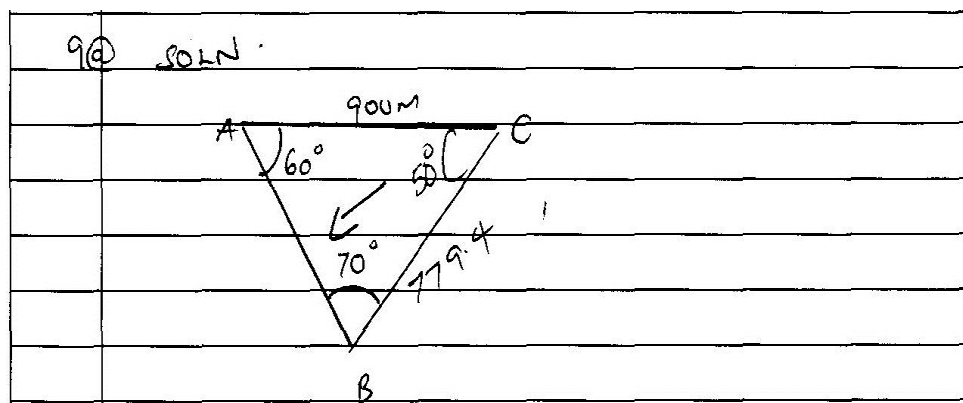 9(a) SOLN.
900M
A C
60° 50°
70°
779.4
B